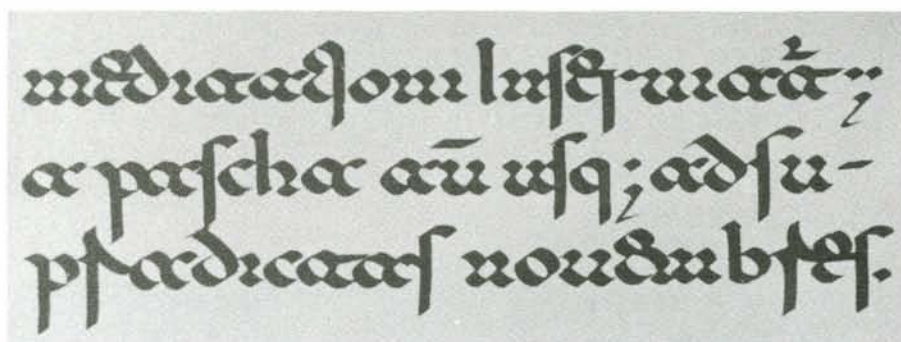 meditationi inseruiat̉;
a pascha aū usq; ad su-
pradictas nouembres.